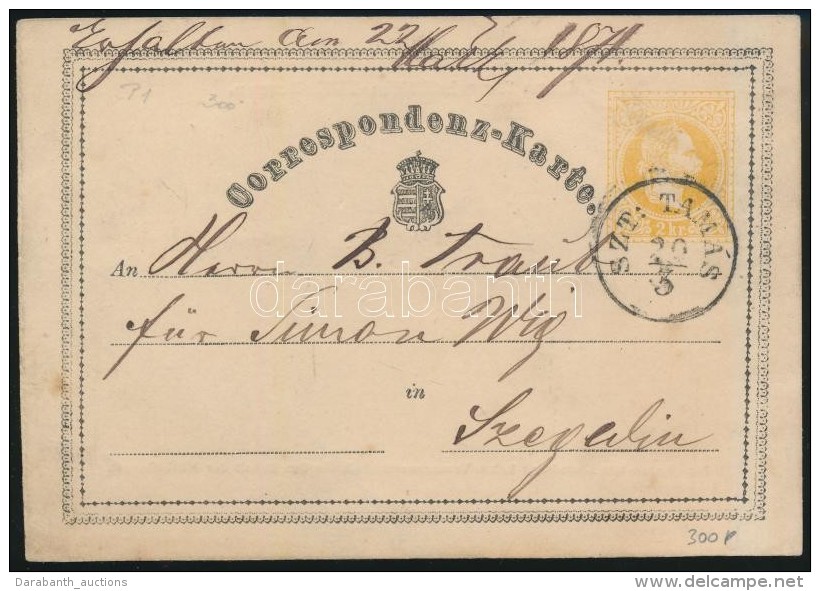 Erhalten am 22 März 1871.
P1 300
Correspondenz-Karte.
2 kr.
SZT: TAMÁS
20
3
An Herrn B. Traub
darabanth
für Simon Wig
in
Szegedin
300 P
Darabanth_auctions
delcampe.net